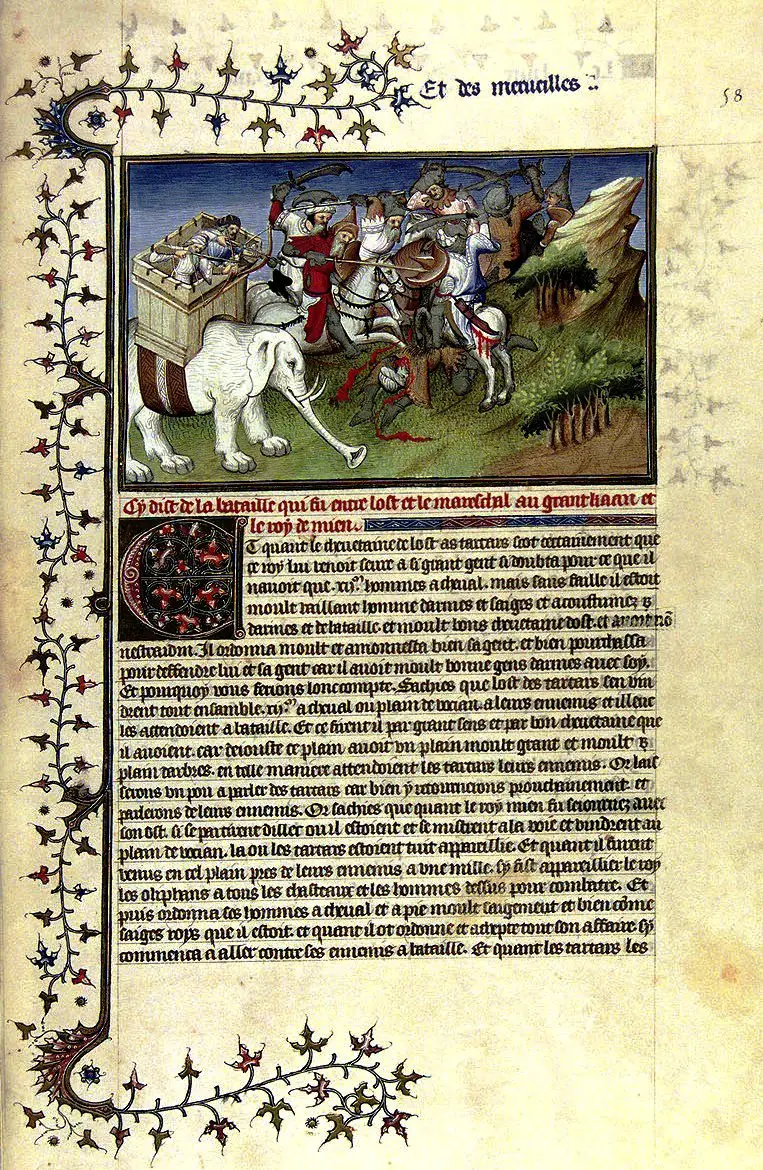 Et des merueilles
58
Cy dist de la bataille qui fu entre lost et le mareschal au grant kaan et
le roy de mien.
Et quant le cheuetaine de lost as tartars scot certainement que
ce roy lui venoit seure a si grant gent si doubta pour ce que il
nauoit que .xij. hommes a cheual. mais sans faille il estoit
moult vaillant homme darmes et saiges et acoustumez
darmes et de bataille et moult bons cheuetaine dost. et
Il ordonna moult et amonnesta bien sa gent. et bien pourchassa
pour deffendre lui et sa gent car il auoit moult bonne gens darmes auec soy.
Et pourquoy vous ferons lonc compte. Sachies que lost des tartars sen vin
drent tout ensamble .xij. a cheual ou plain de vocian a leurs ennemis et illeuc
les attendoient a bataille. Et ce firent il par grant sens et par bon cheuetaine que
il auoient. car deiouste ce plain auoit vn plain moult grant et moult
plain darbres. en telle maniere attendoient les tartars leurs ennemis. Or lais
serons vn pou a parler des tartars car bien y retournerons prouchainement. et
parlerons de leurs ennemis. Or sachies que quant le roy mien fu seiournez auec
son ost. si se partirent dillec ou il estoient et se mistrent a la voie et vindrent au
plain de vocian. la ou les tartars estoient tuit appareillie. Et quant il furent
venus en cel plain pres de leurs ennemis a vne mille. sy fist appareillier le roy
les oliphans a tous les chasteaux et les hommes dessus pour combatre. Et
puis ordonna ses hommes a cheual et a pie moult saigement et bien come
saiges roys que il estoit. et quant il ot ordonne et tout son affaire sy
commenca a aller contre ses ennemis a bataille. Et quant les tartars les